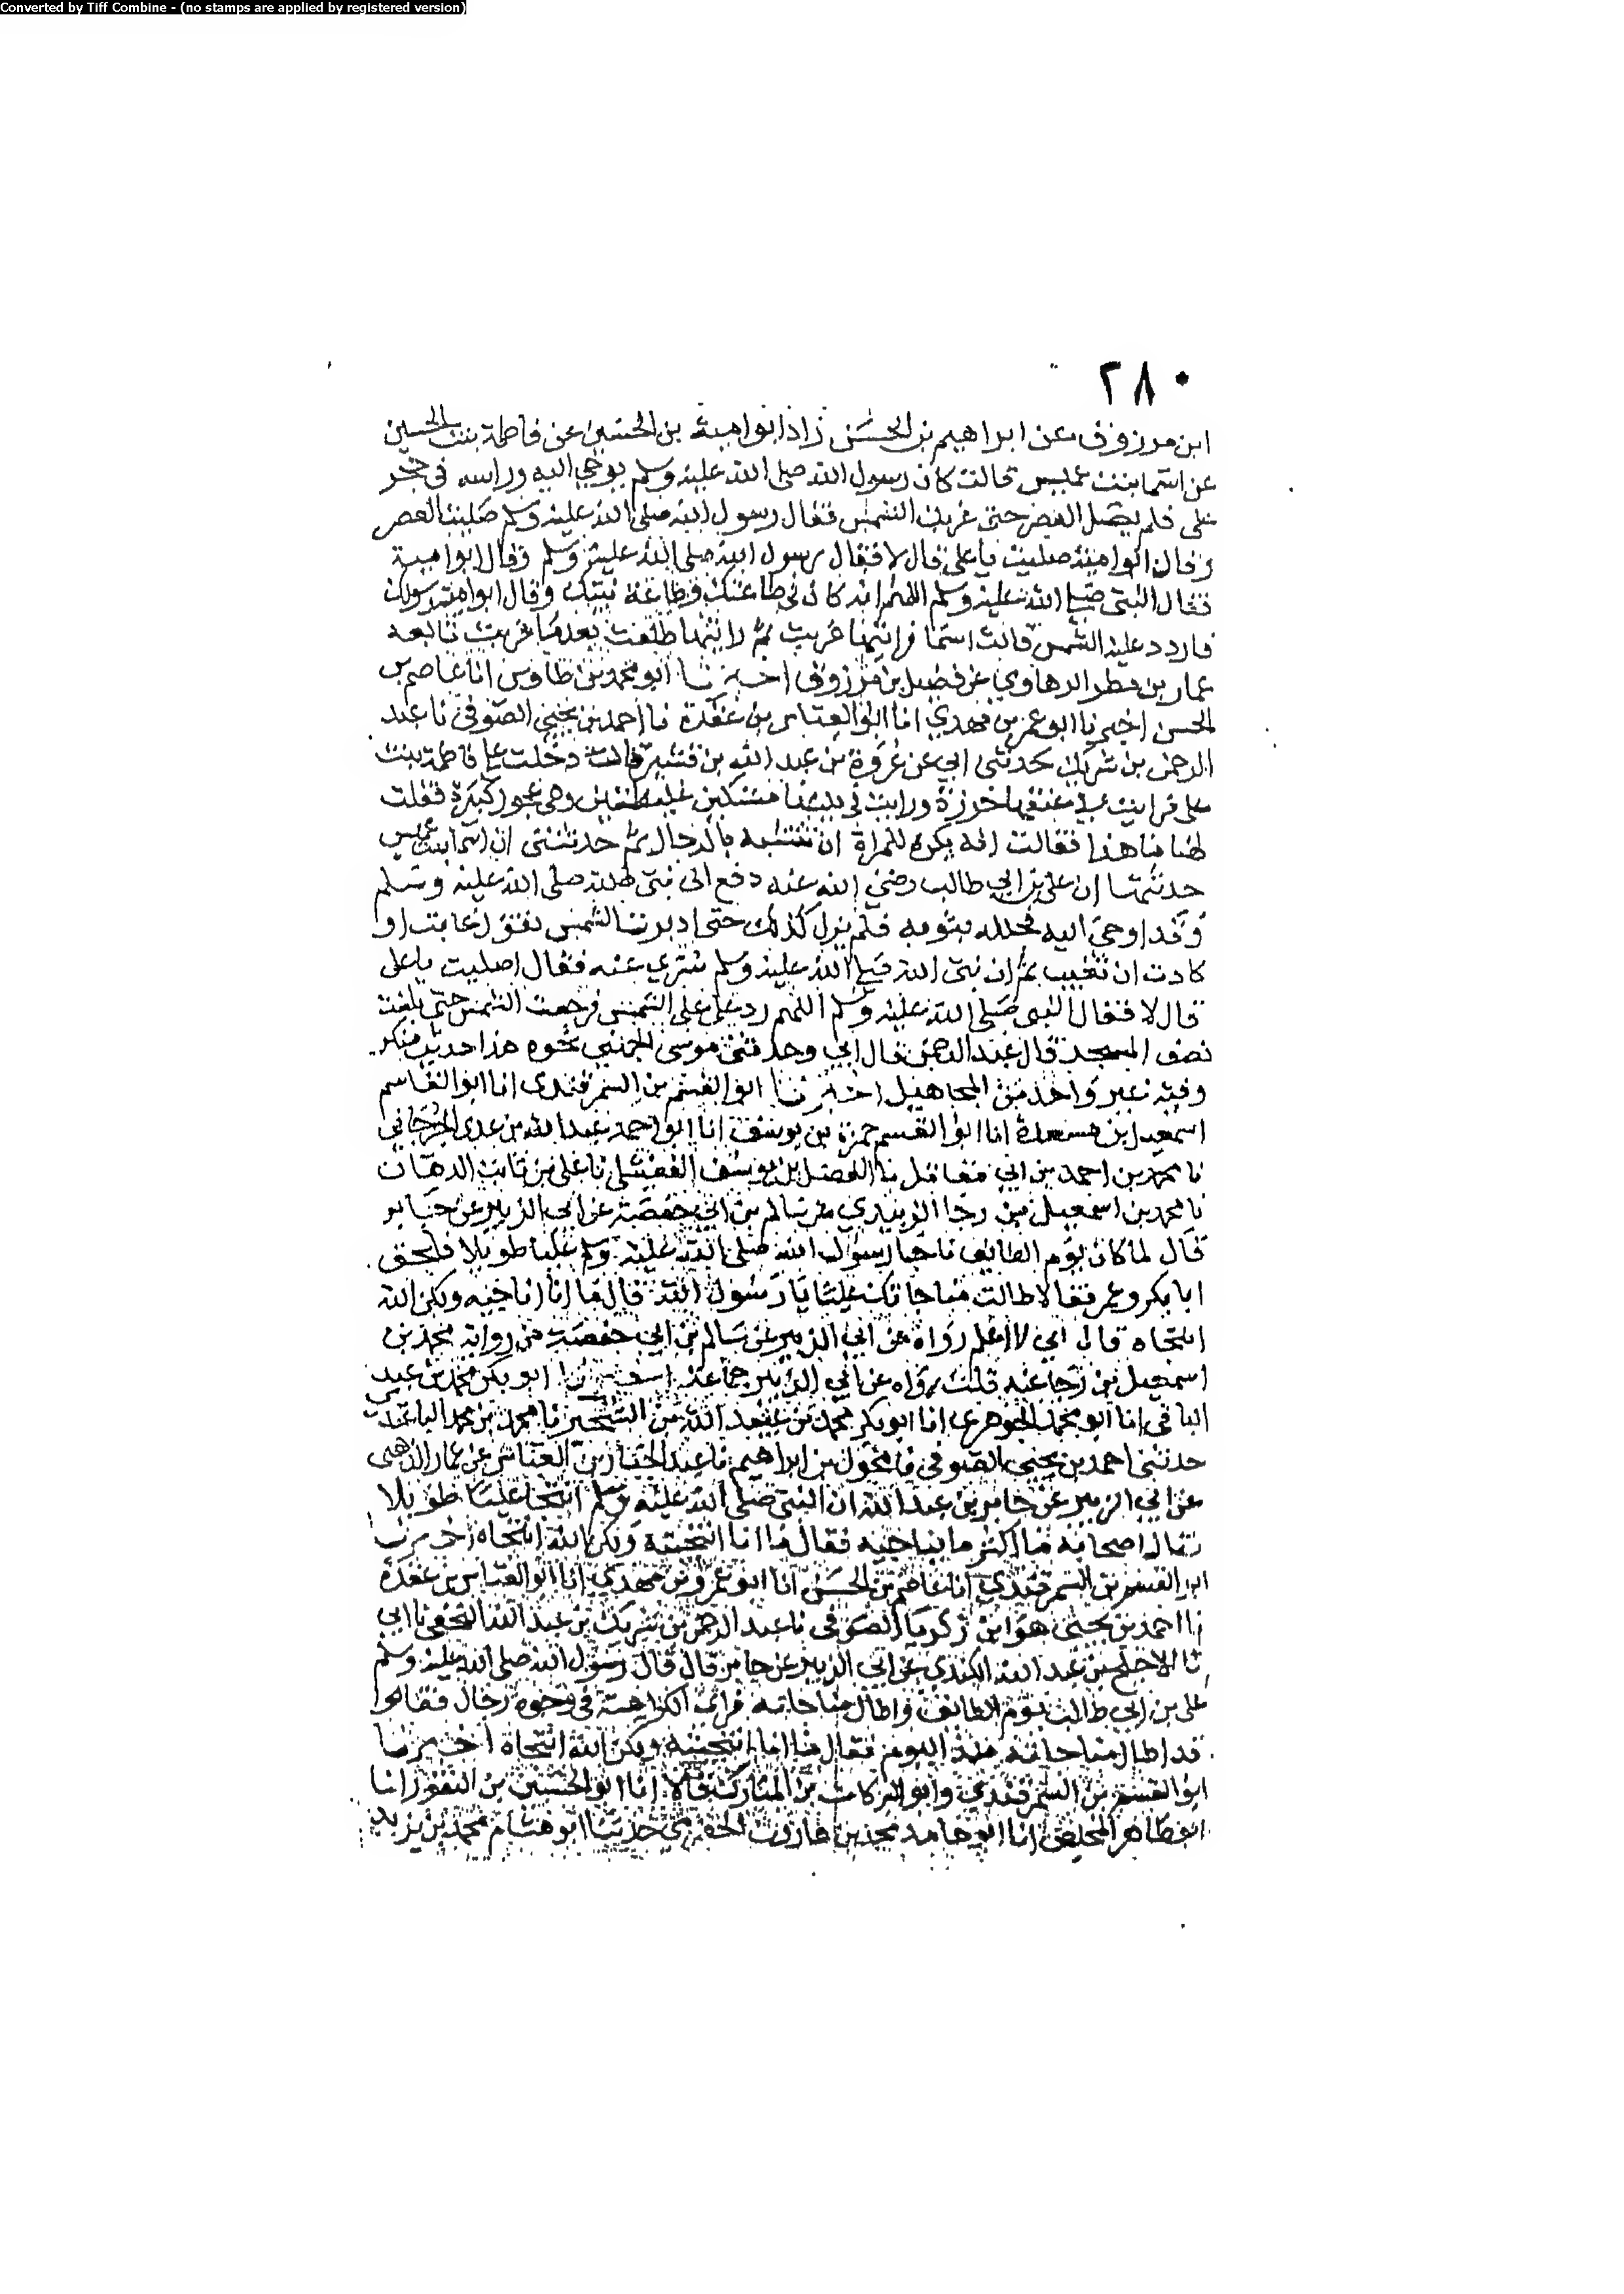 Converted by Tiff Combine - (no stamps are applied by registered version)
٢٨٠
ابن مرزوق عن ابراهيم بن الحسن زاد ابو امية بن الحسين عن فاطمة بنت الحسين
عن اسما بنت عميس قالت كان رسول الله صلى الله عليه وسلم يوحي اليه وراسه في حجر
علي فلم يصل العصر حتى غربت الشمس فقال رسول الله صلى الله عليه وسلم صليت العصر
وقال ابو امية صليت يا علي قال لا فقال رسول الله صلى الله عليه وسلم وقال ابو امية
فقال النبي صلى الله عليه وسلم اللهم انه كان في طاعتك وطاعة نبيك وقال ابو امية رسولك
فاردد عليه الشمس قالت اسما فرايتها غربت ثم رايتها طلعت بعدما غربت تابعه
عمار بن مطر الرهاوي عن فضيل بن مرزوق اخبرنا ابو محمد بن طاوس انا عاصم بن
الحسن اخبرنا ابو عمر بن مهدي انا ابو العباس بن عقدة نا احمد بن يحيى الصوفي نا عبد
الرحمن بن شريك حدثني ابي عن عروة بن عبد الله بن قشير قالت دخلت على فاطمة بنت
علي فرايت في عنقها خرزة ورايت في يديها مسكتين غليظتين وهي عجوز كبيرة فقلت
لها ما هذا فقالت انه يكره للمراة ان تتشبه بالرجال ثم حدثتني ان اسما بنت عميس
حدثتها ان علي بن ابي طالب رضي الله عنه دفع الى نبي الله صلى الله عليه وسلم
وقد اوحي اليه فجلله بثوبه فلم يزل كذلك حتى ادبرت الشمس تقول غابت او
كادت ان تغيب ثم ان نبي الله صلى الله عليه وسلم سري عنه فقال اصليت يا علي
قال لا فقال النبي صلى الله عليه وسلم اللهم رد على علي الشمس فرجعت الشمس حتى بلغت
نصف المسجد قال عبد الرحمن قال ابي وحدثني موسى الجهني نحوه هذا حديث منكر
وفيه غير واحد من المجاهيل اخبرنا ابو القسم بن السمرقندي انا ابو القاسم
اسمعيل بن مسعدة انا ابو القسم حمزة بن يوسف انا ابو احمد عبد الله بن عدي الجرجاني
نا محمد بن احمد بن ابي مقاتل نا الفضل بن يوسف نا علي بن ثابت الدهان
نا محمد بن اسمعيل بن رجا الزبيدي عن سالم بن ابي حفصة عن ابي الزبير عن جابر
قال لما كان يوم الطايف ناجا رسول الله صلى الله عليه وسلم عليا طويلا فلحق
ابا بكر وعمر فقالا طالت مناجاتك عليا يا رسول الله قال ما انا اناجيه ولكن الله
انتجاه قال ابي لا اعلم رواه عن ابي الزبير عن سالم بن ابي حفصة من رواية محمد بن
اسمعيل بن رجا عنه قلت رواه عن ابي الزبير جماعة اخبرنا ابو بكر محمد بن عبد
الباقي انا ابو محمد الجوهري انا ابو بكر محمد بن عبيد الله بن الشخير نا محمد بن محمد الباغندي
حدثني احمد بن يحيى الصوفي نا مخول بن ابراهيم نا عبد الجبار بن العباس عن عمار الدهني
عن ابي الزبير عن جابر بن عبد الله ان النبي صلى الله عليه وسلم انتجا عليا طويلا
فقال اصحابه ما اكثر ما يناجيه فقال ما انا انتجيته ولكن الله انتجاه اخبرنا
ابو القسم بن السمرقندي انا عاصم بن الحسن انا ابو عمرو بن مهدي انا ابو العباس بن عقدة
نا احمد بن يحيى هو ابن زكريا الصوفي نا عبد الرحمن بن شريك بن عبد الله النخعي نا ابي
نا الاجلح بن عبد الله الكندي عن ابي الزبير عن جابر قال قال رسول الله صلى الله عليه وسلم
علي بن ابي طالب يوم الطائف واطال مناجاته فراى الكراهية في وجوه رجال فقالوا
قد اطال مناجاته منذ اليوم فقال ما انا انتجيته ولكن الله انتجاه اخبرنا
ابو القسم بن السمرقندي وابو البركات بن المبارك قالا انا ابو الحسين بن النقور انا
ابو طاهر المخلص انا ابو حامد محمد بن هارون الحضرمي حدثنا ابو هشام محمد بن يزيد